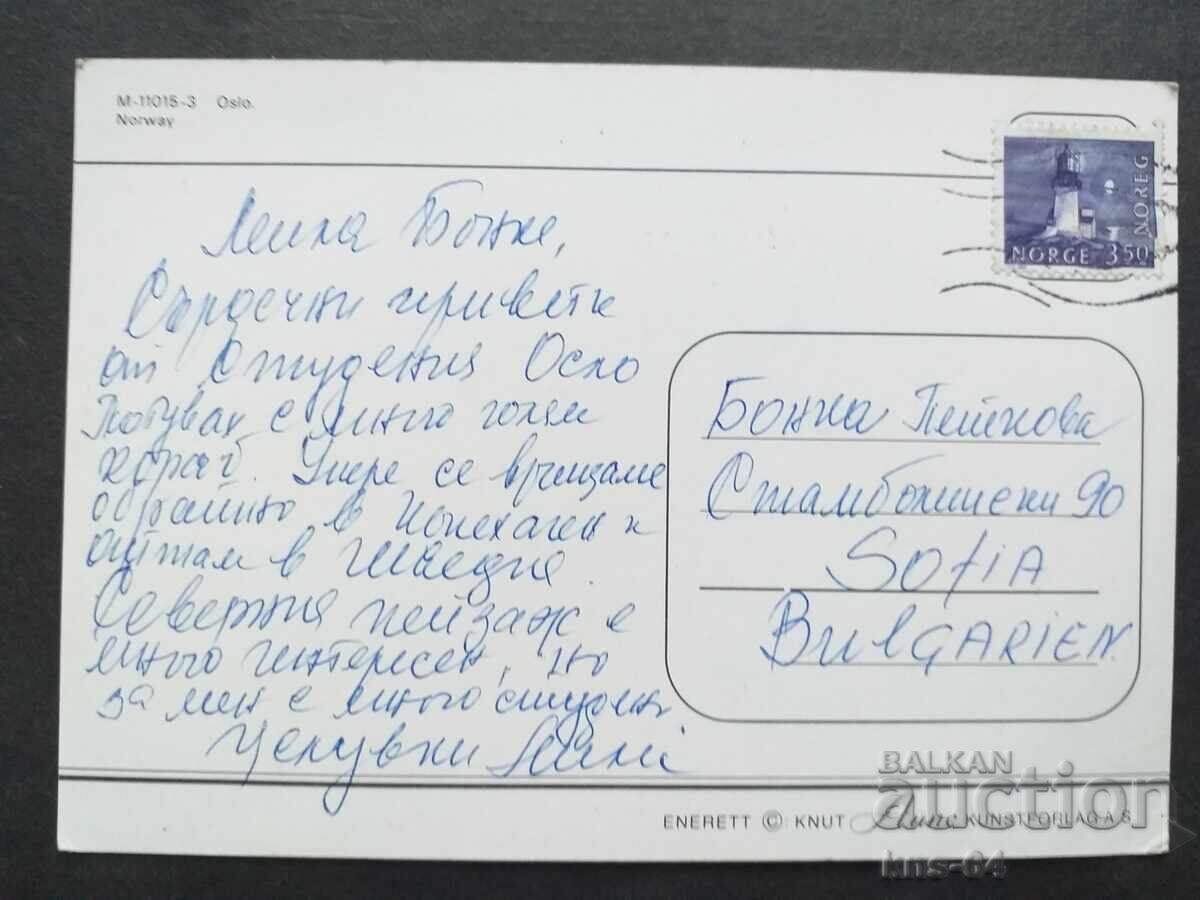 M-11015-3 Oslo.
Norway
NORGE 350
NOREG
Мила Божке,
Сърдечни привети
от студения Осло
Пътувах с много голям
кораб. Утре се връщаме
обратно в Копехаген и
оттам в Швеция.
Северния пейзаж е
много интересен, но
за мен е много студен.
Целувки
Божка Пейкова
Стамболийски 90
Sofia
BulGARiEN.
ENERETT © KNUT Aune KUNSTFORLAG A S
BALKAN
auction
kns-64